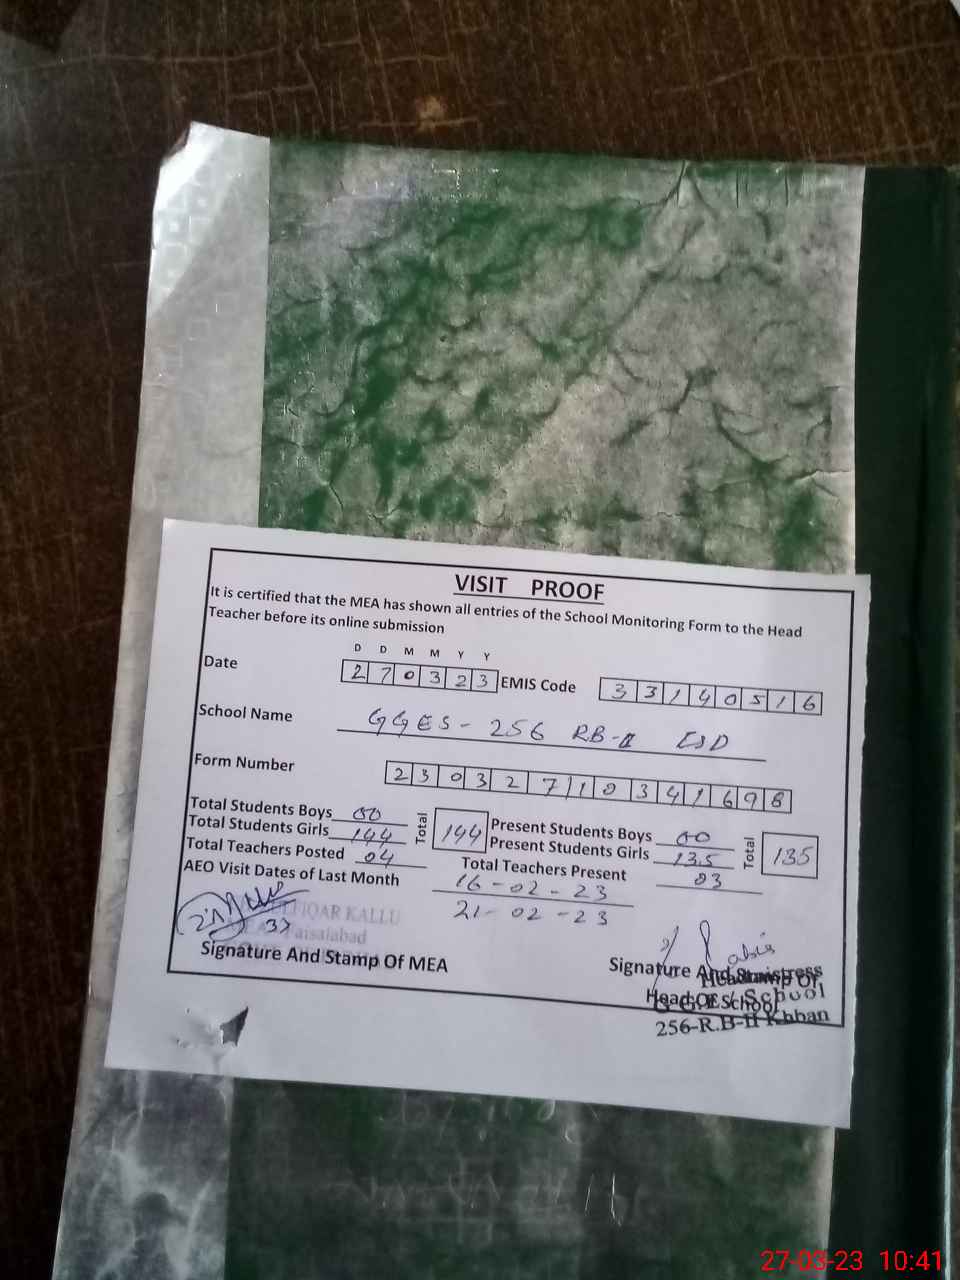 VISIT PROOF
It is certified that the MEA has shown all entries of the School Monitoring Form to the Head
Teacher before its online submission
D D M M Y Y
Date 2 7 0 3 2 3 EMIS Code 3 3 1 4 0 5 1 6
School Name GGES - 256 RB-II FSD
Form Number 2 3 0 3 2 7 1 0 3 4 1 6 9 8
Total Students Boys 00 Total 144 Present Students Boys 00 Total 135
Total Students Girls 144 Present Students Girls 135
Total Teachers Posted 04 Total Teachers Present 03
AEO Visit Dates of Last Month 16-02-23
21-02-23
FIQAR KALLU
MEA Faisalabad
37
Signature And Stamp Of MEA
Signature And Stamp Of
Head Of School
Headmistress
School
256-R.B-II Khban
27-03-23 10:41